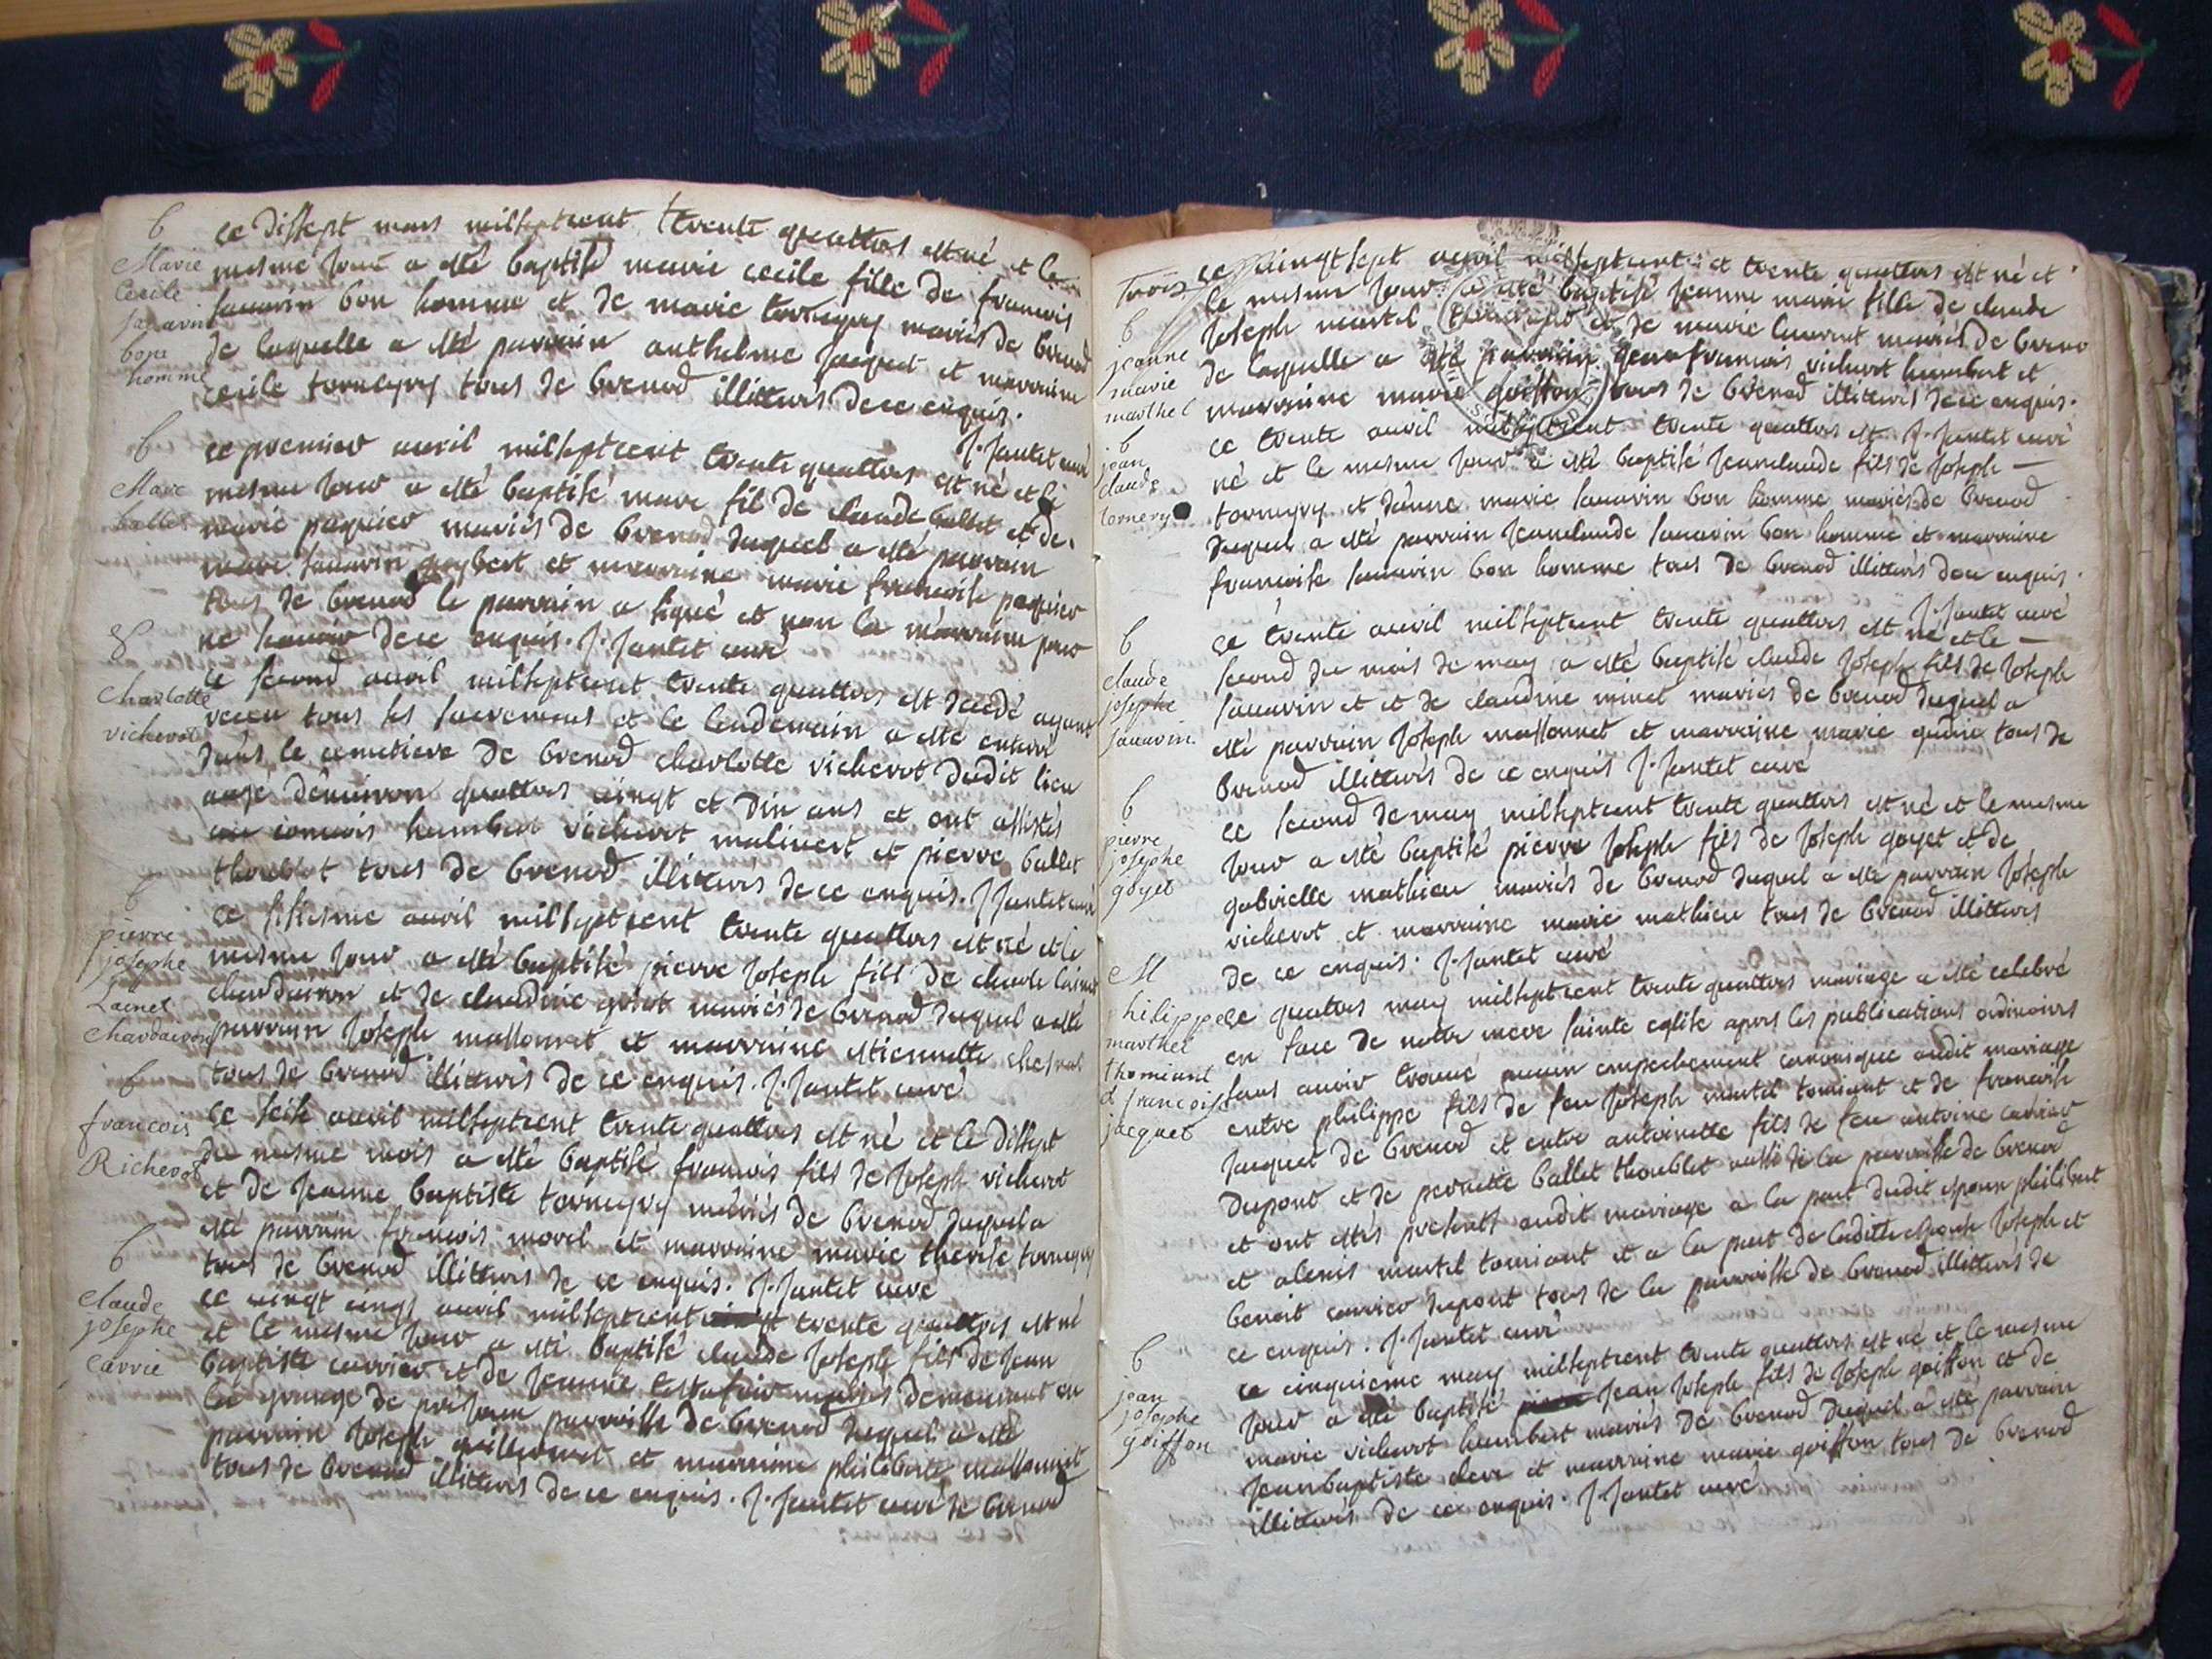 b
Marie
Cecile
savarin
bon
homme
ce dissept mars milseptcent trente quattres est né et le
mesme jour a esté baptisé marie cecile fille de francois
savarin bon homme et de marie torneyry mariés de brenod
de laquelle a esté parrain anthelme jacquet et marraine
cecile torneyry tous de brenod illitterés de ce enquis.
J. Jantet curé
b
Marc
ballet
ce premier avril milseptcent trente quattres est né et le
mesme jour a esté baptisé marc fil de claude ballet et de
marie paquier mariés de brenod duquel a esté parrain
marc savarin guybert et marraine marie francoise paquier
tous de brenod le parrain a signé et non la marraine pour
ne scavoir de ce enquis. J. Jantet curé
Charlotte
vicherot
le second avril milseptcent trente quattres est decedé ayant
receu tous les sacremens et le lendemain a esté enterré
dans le cemetiere de brenod charlotte vicherot dudit lieu
aagé d'environ quattres vingt et dix ans et ont assistés
au convois humbert vicherot malivert et pierre ballet
thoublet tous de brenod illitterés de ce enquis. J. Jantet curé
b
pierre
josephe
Lainet
Chardairon
ce sisiesme avril milseptcent trente quattres est né et le
mesme jour a esté baptisé pierre joseph fils de claude lainet
chardairon et de claudine goiet mariés de brenod duquel a esté
parrain joseph massonnet et marraine estiennette chesnal
tous de brenod illitterés de ce enquis. J. Jantet curé
b
francois
Richerot
ce seise avril milseptcent trente quattres est né et le dissept
du mesme mois a esté baptisé francois fils de joseph vicherot
et de jeanne baptiste torneyry mariés de brenod duquel a
esté parrain francois morel et marraine marie therese torneyry
tous de brenod illitterés de ce enquis. J. Jantet curé
b
claude
josephe
Carrie
ce vingt cinq avril milseptcent trente quattres est né
et le mesme jour a esté baptisé claude joseph fils de jean
baptiste carrier et de jeanne mariés demeurant en
la grange de parroisse de brenod duquel a esté
parrain joseph guillermet et marraine philiberte massonnet
tous de brenod illitterés de ce enquis. J. Jantet curé de brenod
Trois
b
jeanne
marie
marthel
ce vingt sept avril milseptcent et trente quattres est né et
le mesme jour a esté baptisé jeanne marie fille de claude
joseph martel et de marie laurent mariés de breno
de laquelle a esté parrain jean francois vicherot humbert et
marraine marie goiffon tous de brenod illitterés de ce enquis.
J. Jantet curé
b
jean
claude
tornery
ce trente avril milseptcent trente quattres est
né et le mesme jour a esté baptisé jean claude fils de joseph
torneyry et d'anne marie savarin bon homme mariés de brenod
duquel a esté parrain jean claude savarin bon homme et marraine
francoise savarin bon homme tous de brenod illitterés de ce enquis.
J. Jantet curé
b
claude
josephe
savarin
ce trente avril milseptcent trente quattres est né et le
second du mois de may a esté baptisé claude joseph fils de joseph
savarin et et de claudine minet mariés de brenod duquel a
esté parrain joseph massonnet et marraine marie tous de
brenod illitterés de ce enquis J. Jantet curé
b
pierre
josephe
goyet
ce second de may milseptcent trente quattres est né et le mesme
jour a esté baptisé pierre joseph fils de joseph goyet et de
gabrielle mathieu mariés de brenod duquel a esté parrain joseph
vicherot et marraine marie mathieu tous de brenod illitterés
de ce enquis. J. Jantet curé
M
philippe
marthel
thomiant
et francoise
jacquet
ce quattres may milseptcent trente quattres mariage a esté celebré
en face de nottre mere sainte eglise apres les publications ordinaires
sans avoir trouvé aucun empechement canonique audit mariage
entre philippe fils de feu joseph martel tomiant et de francoise
jacquet de brenod et entre antoinette fils de feu antoine carrier
dupont et de pernette ballet thoublet aussi de la parroisse de brenod
et ont estés presents audit mariage a la part dudit espoux philibert
et alexis martel tomiant et a la part de laditte espouse joseph et
benoit carrier dupont tous de la parroisse de brenod illitterés de
ce enquis. J. Jantet curé
b
jean
josephe
goiffon
ce cinquieme may milseptcent trente quattres est né et le mesme
jour a esté baptisé jean joseph fils de joseph goiffon et de
marie vicherot humbert mariés de brenod duquel a esté parrain
jean baptiste clerc et marraine marie goiffon tous de brenod
illitterés de ce enquis. J. Jantet curé